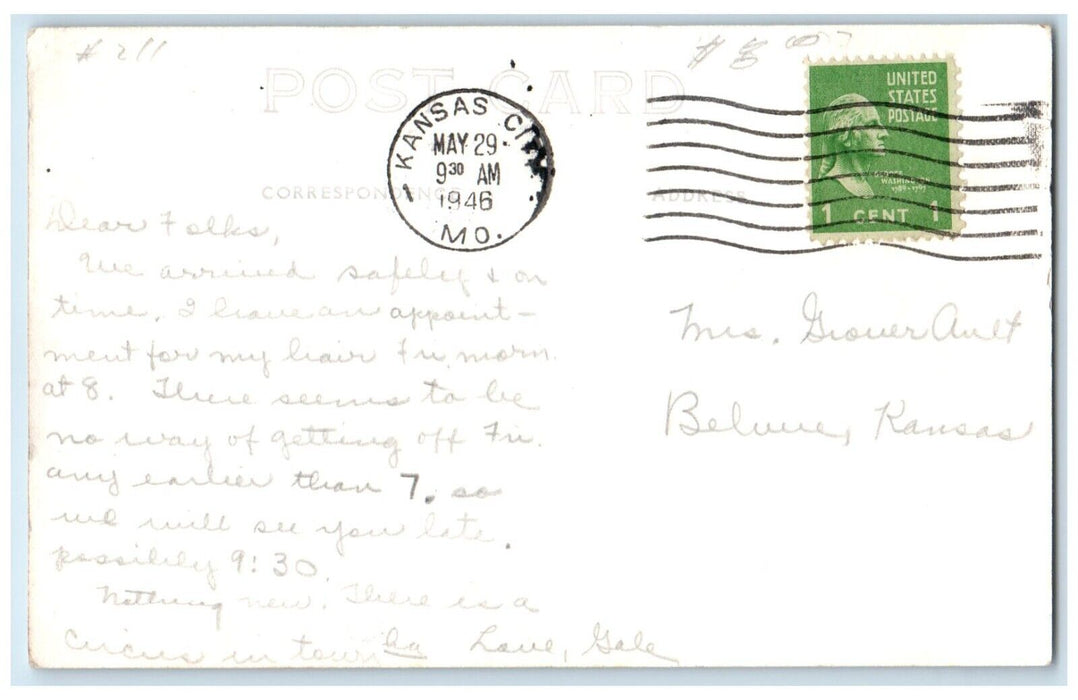 # 211
$ 8 00
POST CARD
UNITED
STATES
POSTAGE
WASHINGTON
1789-1797
1 CENT 1
KANSAS CITY
1
MAY 29
9 30 AM
1946
MO.
CORRESPONDENCE
ADDRESS
Dear Folks,
We arrived safely & on
time. I have an appoint-
ment for my hair Fri. morn.
at 8. There seems to be
no way of getting off Fri.
any earlier than 7, so
we will see you late.
possibly 9:30.
Nothing new. There is a
circus in town ha Love, Gale
Mrs. Grover Ault
Belvue, Kansas